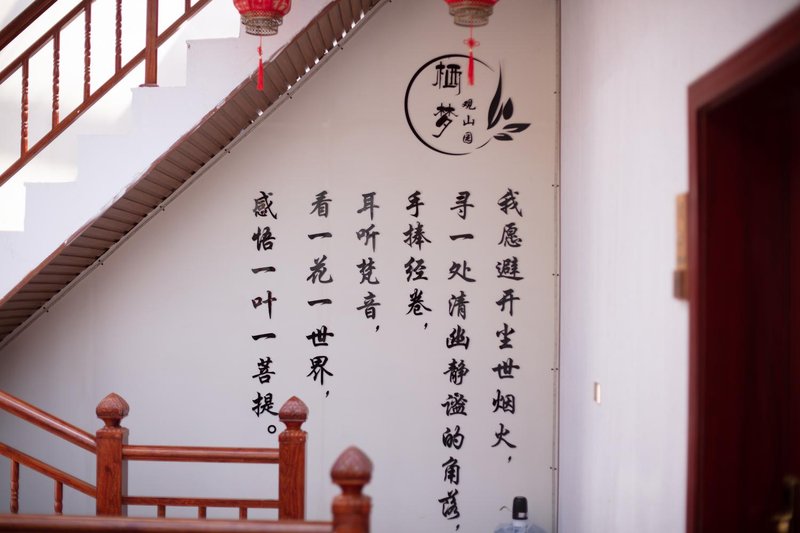 栖梦
观山园
我愿避开尘世烟火，
寻一处清幽静谧的角落，
手捧经卷，
耳听梵音，
看一花一世界，
感悟一叶一菩提。